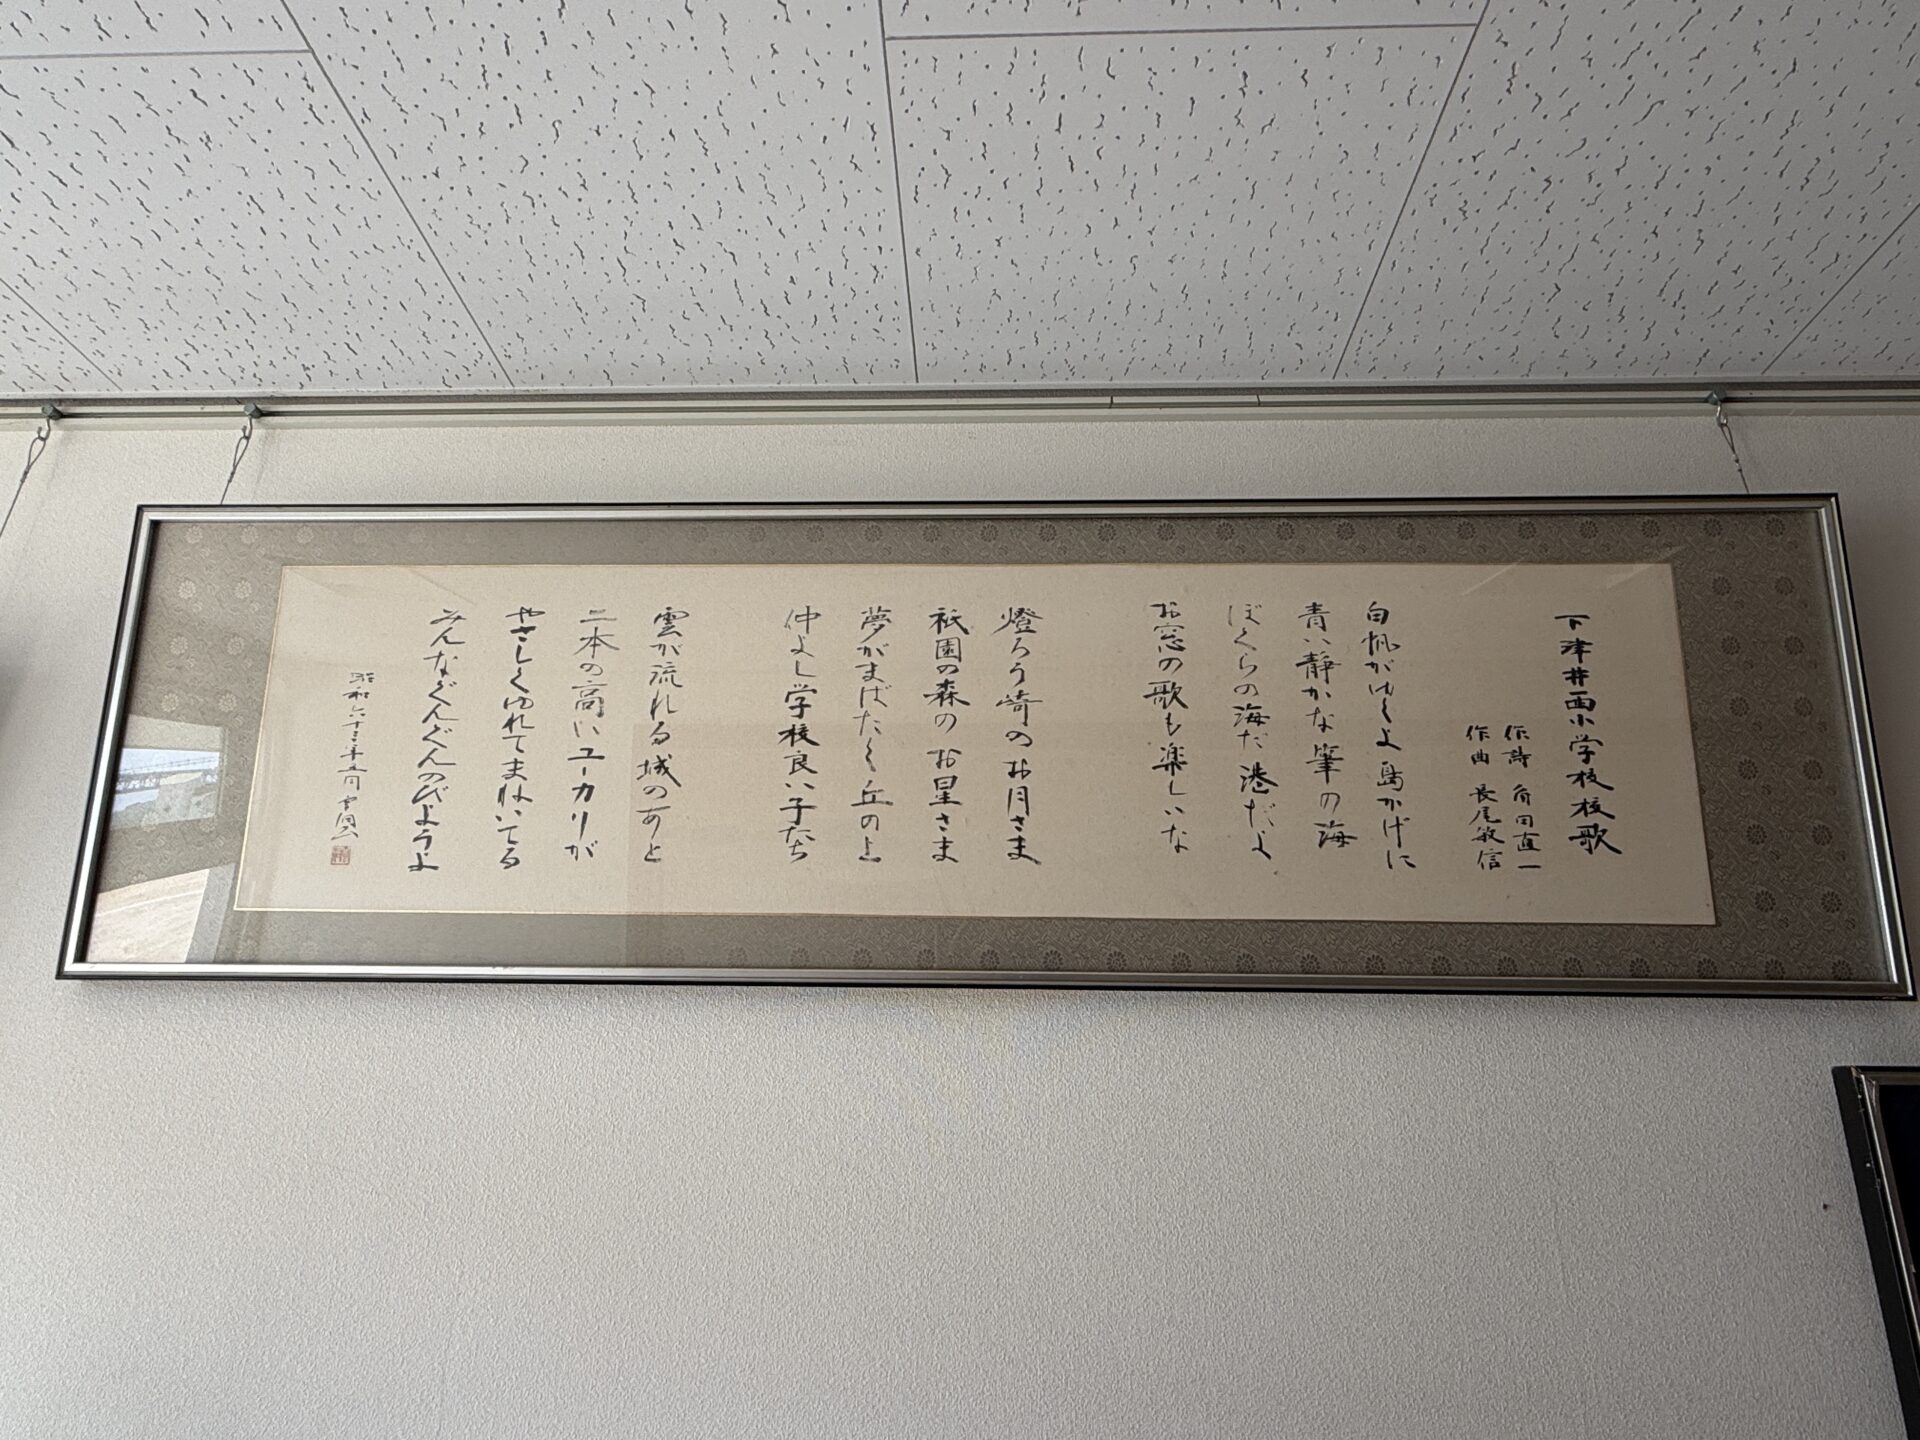 下津井西小学校校歌
作詩 角田直一
作曲 長尾敏信
白帆がゆくよ島かげに
青い静かな筆の海
ぼくらの海だ港だよ
お窓の歌も楽しいな
燈ろう崎のお月さま
祇園の森のお星さま
夢がまばたく丘の上
仲よし学校良い子たち
雲が流れる城のあと
二本の高いユーカリが
やさしくゆれてまねいてる
みんなぐんぐんのびようよ
昭和六十三年